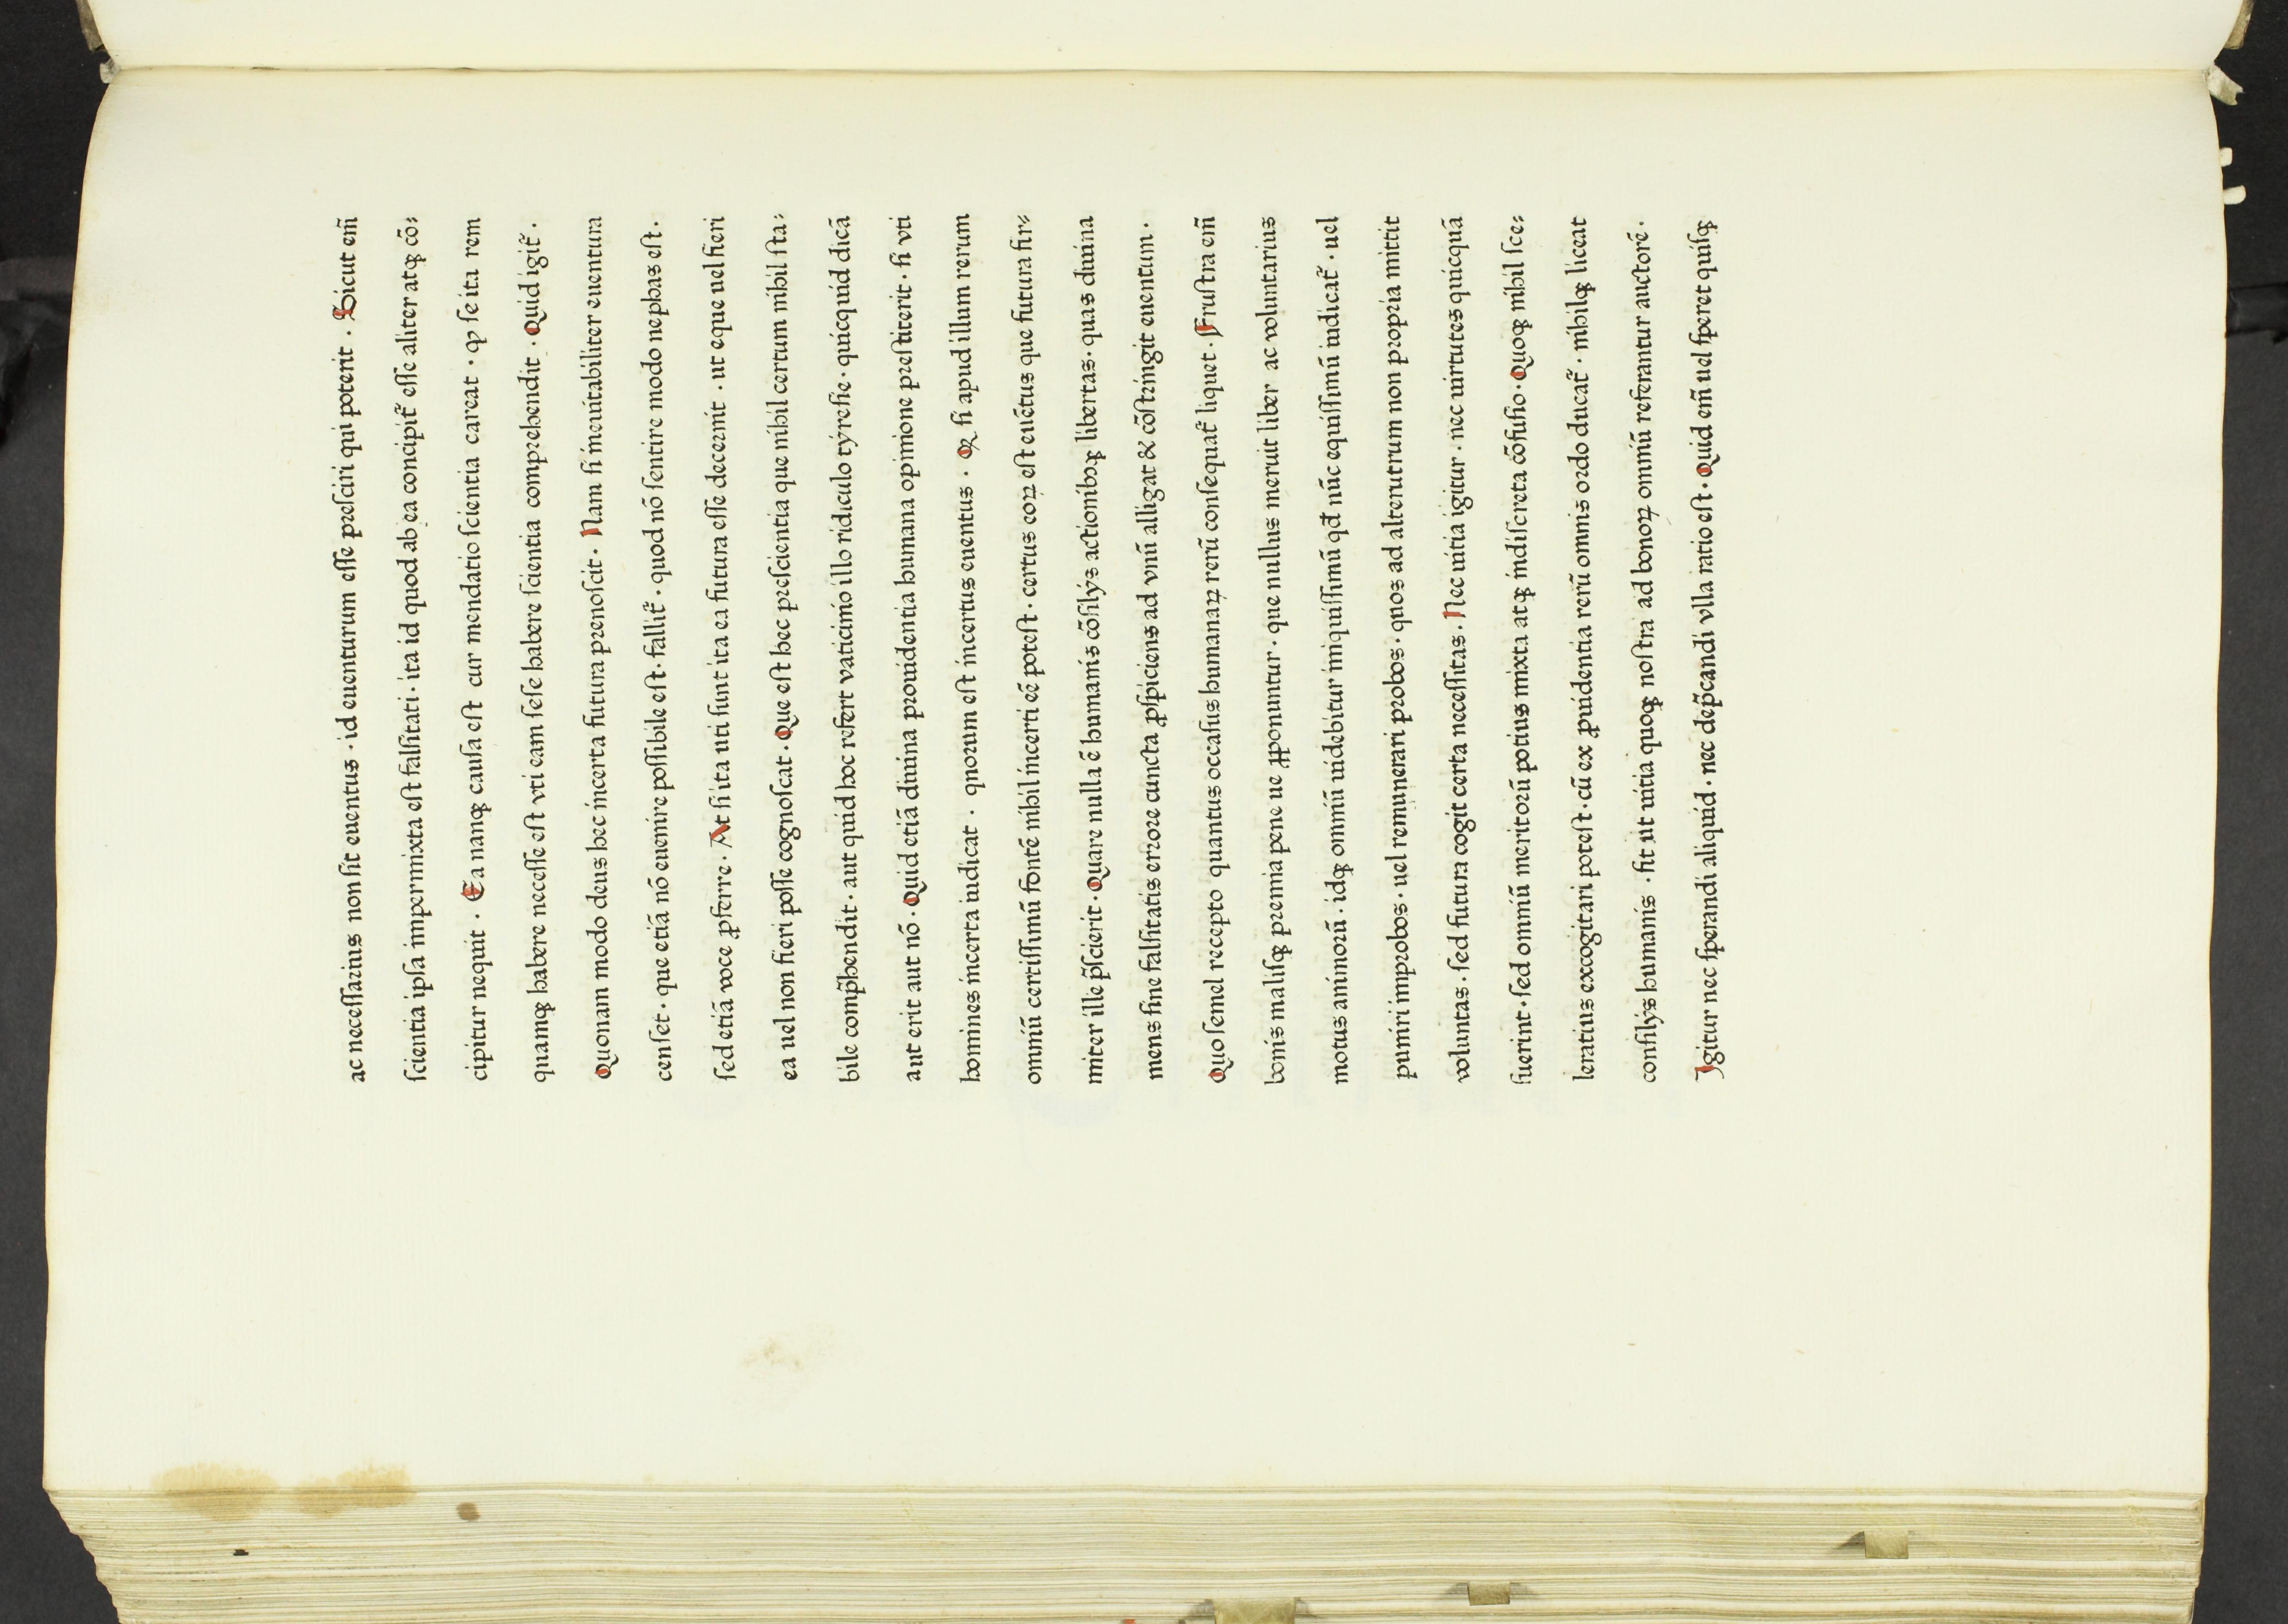 ac neceſſarius non ſit euentus · id euenturum eſſe preſciri qui poterit · Sicut em̃
ſcientia ipſa impermixta eſt falſitati · ita id quod ab ea concipit᷑ eſſe aliter atqꝫ cō⸗
cipitur nequit · Ea nanqꝫ cauſa eſt cur mendatio ſcientia careat · ꝙ ſe ita rem
quamqꝫ habere neceſſe eſt vti eam ſeſe habere ſcientia comprehendit · Quid igit᷑ ·
Quonam modo deus hec incerta futura prenoſcit · Nam ſi ineuitabiliter euentura
cenſet · que etiā nō euenire poſſibile eſt · fallit᷑ · quod nō ſentire modo nephas eſt ·
ſed etiā voce ꝓferre · At ſi ita uti ſunt ita ea futura eſſe decernit · ut eque uel fieri
ea uel non fieri poſſe cognoſcat · Que eſt hec preſcientia que nihil certum nihil ſta⸗
bile comp̃hendit · aut quid hoc refert vaticinio illo ridiculo tyreſie · quicquid dicā
aut erit aut nō · Quid etiā diuina prouidentia humana opinione preſtiterit · ſi vti
homines incerta iudicat · quorum eſt incertus euentus · Qꝫ ſi apud illum rerum
omniū certiſſimū fontē nihil incerti eē poteſt · certus eoꝝ eſt euētus que futura fir⸗
miter ille p̃ſcierit · Quare nulla ē humanis cōſilijs actionibꝫqꝫ libertas · quas diuina
mens ſine falſitatis errore cuncta ꝓſpiciens ad vnū alligat & cōſtringit euentum ·
Quo ſemel recepto quantus occaſus humanaꝝ rerū conſequat᷑ liquet · Fruſtra em̃
bonis maliſqꝫ premia pene ue ꝓponuntur · que nullus meruit liber ac voluntarius
motus animorū · idqꝫ omniū uidebitur iniquiſſimū qd̄ nūc equiſſimū iudicat᷑ · uel
puniri improbos · uel remunerari probos · quos ad alterutrum non propria mittit
voluntas · ſed futura cogit certa neceſſitas · Nec uitia igitur · nec uirtutes quicquā
fuerint · ſed omniū meritorū potius mixta atqꝫ indiſcreta cōfuſio · Quoqꝫ nihil ſce⸗
leratius excogitari poteſt · cū ex ꝓuidentia rerū omnis ordo ducat᷑ · nihilqꝫ liceat
conſilijs humanis · fit ut uitia quoqꝫ noſtra ad bonoꝝ omniū referantur auctorē ·
Igitur nec ſperandi aliquid · nec dep̃candi vlla ratio eſt · Quid em̃ uel ſperet quiſqꝫ